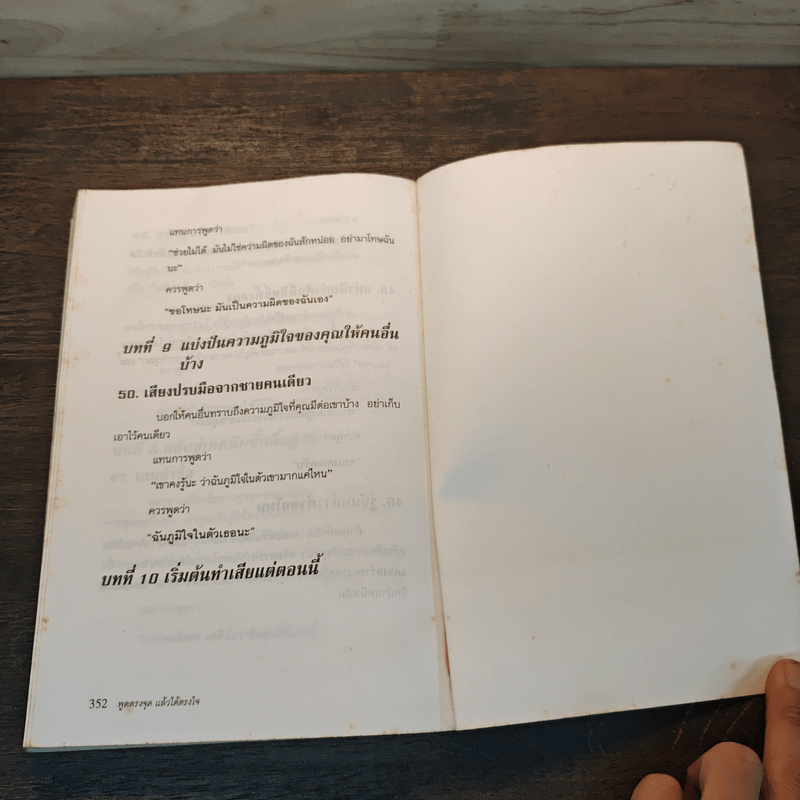 แทนการพูดว่า
"ช่วยไม่ได้ มันไม่ใช่ความผิดของฉันสักหน่อย อย่ามาโทษฉัน
นะ"
ควรพูดว่า
"ขอโทษนะ มันเป็นความผิดของฉันเอง"
บทที่ 9 แบ่งปันความภูมิใจของคุณให้คนอื่น
บ้าง
50. เสียงปรบมือจากชายคนเดียว
บอกให้คนอื่นทราบถึงความภูมิใจที่คุณมีต่อเขาบ้าง อย่าเก็บ
เอาไว้คนเดียว
แทนการพูดว่า
"เขาคงรู้นะ ว่าฉันภูมิใจในตัวเขามากแค่ไหน"
ควรพูดว่า
"ฉันภูมิใจในตัวเธอนะ"
บทที่ 10 เริ่มต้นทำเสียแต่ตอนนี้
352 พูดตรงจุด แล้วได้ตรงใจ